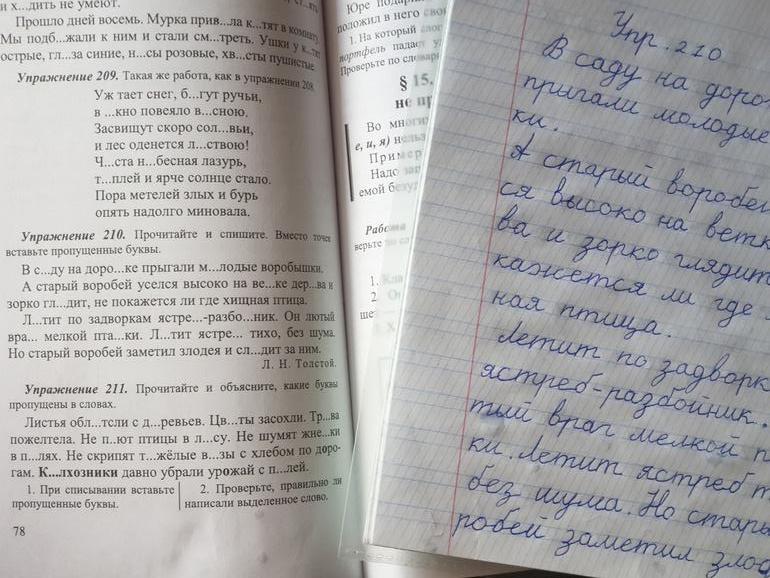 и х...дить не умеют.
Прошло дней восемь. Мурка прив...ла к...тят в комнату.
Мы подб...жали к ним и стали см...треть. Ушки у к...тят
острые, гл...за синие, н...сы розовые, хв...сты пушистые.
Упражнение 209. Такая же работа, как в упражнении 208.
Уж тает снег, б...гут ручьи,
в ...кно повеяло в...сною.
Засвищут скоро сол...вьи,
и лес оденется л...ствою!
Ч...ста н...бесная лазурь,
т...плей и ярче солнце стало.
Пора метелей злых и бурь
опять надолго миновала.
Упражнение 210. Прочитайте и спишите. Вместо точек
вставьте пропущенные буквы.
В с...ду на доро...ке прыгали м...лодые воробышки.
А старый воробей уселся высоко на ве...ке дер...ва и
зорко гл...дит, не покажется ли где хищная птица.
Л...тит по задворкам ястре...-разбо...ник. Он лютый
вра... мелкой пта...ки. Л...тит ястре... тихо, без шума.
Но старый воробей заметил злодея и сл...дит за ним.
Л. Н. Толстой.
Упражнение 211. Прочитайте и объясните, какие буквы
пропущены в словах.
Листья обл...тсли с д...ревьев. Цв...ты засохли. Тр...ва
пожелтела. Не п...ют птицы в л...су. Не шумят жне...ки
в п...лях. Не скрипят т...жёлые в...зы с хлебом по доро-
гам. К...лхозники давно убрали урожай с п...лей.
1. При списывании вставьте
пропущенные буквы.
2. Проверьте, правильно ли
написали выделенное слово.
78
Юре
положил в него
1. На который
портфель падает
Проверьте по
§ 15.
не
Во
е, и, я)
Надо
Упр. 210
В саду на
пригали молодые
ки.
А старый воробей
ся высоко на
ва и зорко глядит
кажется ли где
ная птица.
Летит по
ястреб-разбойник.
тый враг мелкой
ки. Летит ястреб
без шума. Но
робей заметил